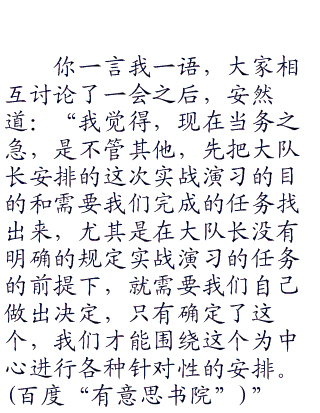 你一言我一语，大家相
互讨论了一会之后，安然
道：“我觉得，现在当务之
急，是不管其他，先把大队
长安排的这次实战演习的目
的和需要我们完成的任务找
出来，尤其是在大队长没有
明确的规定实战演习的任务
的前提下，就需要我们自己
做出决定，只有确定了这
个，我们才能围绕这个为中
心进行各种针对性的安排。
(百度“有意思书院”)”